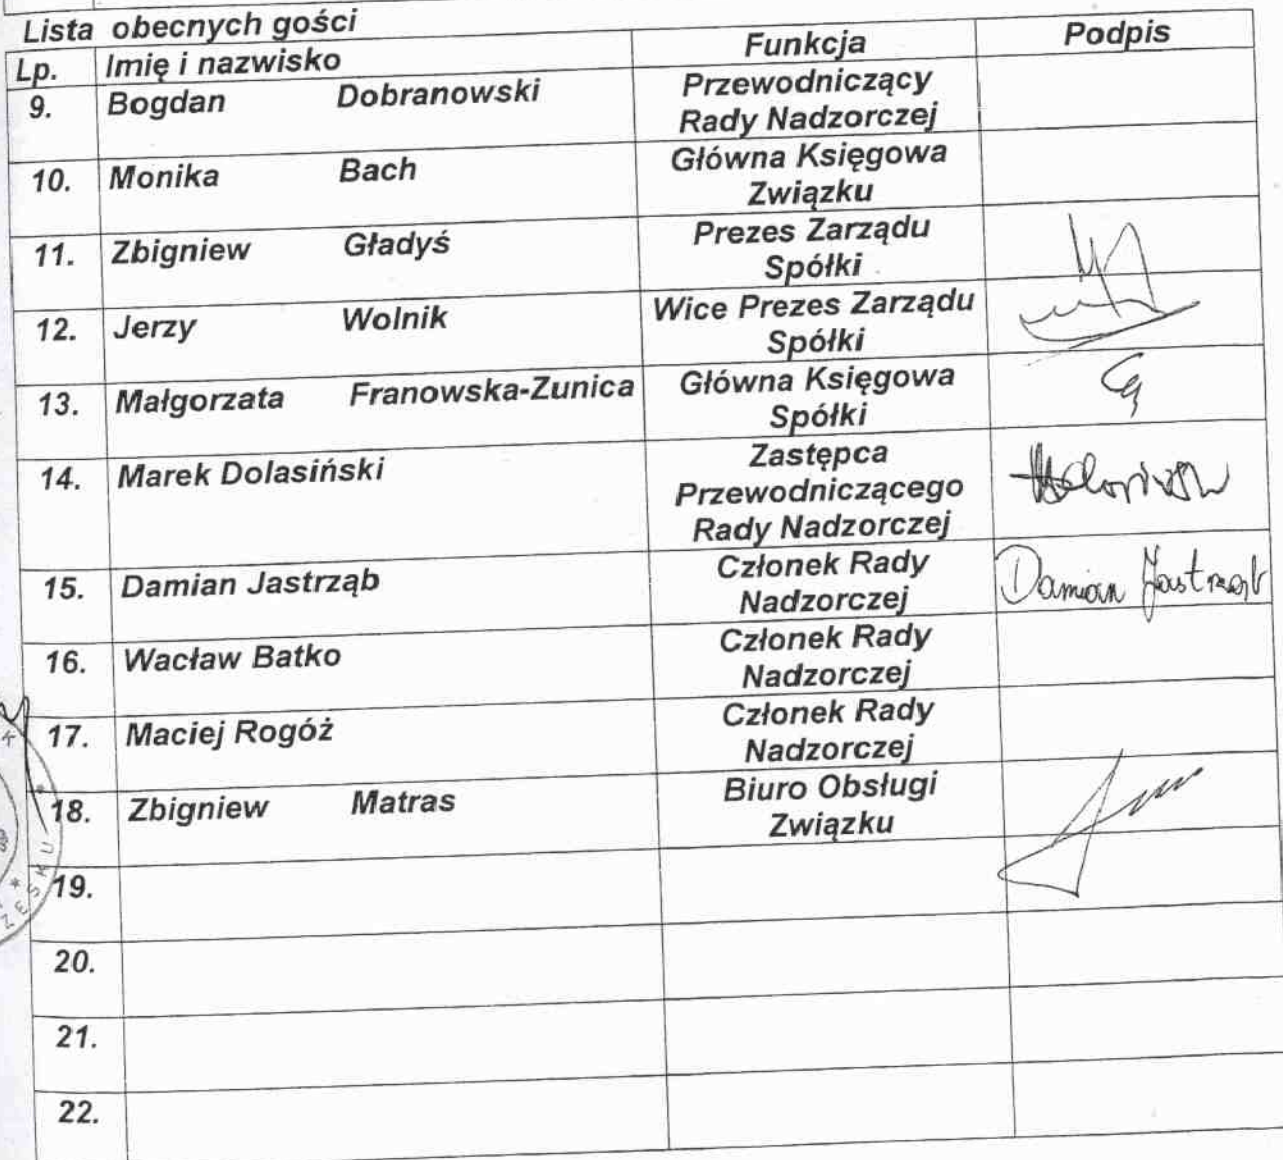 Lista obecnych gości
Lp. Imię i nazwisko Funkcja Podpis
9. Bogdan Dobranowski Przewodniczący
Rady Nadzorczej
10. Monika Bach Główna Księgowa
Związku
11. Zbigniew Gładyś Prezes Zarządu
Spółki
12. Jerzy Wolnik Wice Prezes Zarządu
Spółki
13. Małgorzata Franowska-Zunica Główna Księgowa
Spółki
14. Marek Dolasiński Zastępca
Przewodniczącego
Rady Nadzorczej
15. Damian Jastrząb Członek Rady
Nadzorczej
Damian Jastrząb
16. Wacław Batko Członek Rady
Nadzorczej
17. Maciej Rogóż Członek Rady
Nadzorczej
18. Zbigniew Matras Biuro Obsługi
Związku
19.
20.
21.
22.